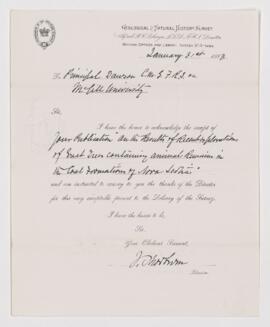 GEOLOGICAL & NATURAL HISTORY SURVEY
Alfred R. C. Selwyn, LL.D., F.R.S., Director
MUSEUM, OFFICES AND LIBRARY, SUSSEX ST. OTTAWA
January 31st 188
To Principal Dawson C.M.G. F.R.S. &c
McGill University
Sir
I have the honor to acknowledge the receipt of
Your Publication "On the Results of Recent Explorations
of Erect Trees containing Animal Remains in
the Coal Formations of Nova Scotia"
and am instructed to convey to you the thanks of the Director
for this very acceptable present to the Library of the Survey.
I have the honor to be,
Sir
Your Obedient Servant,
Librarian